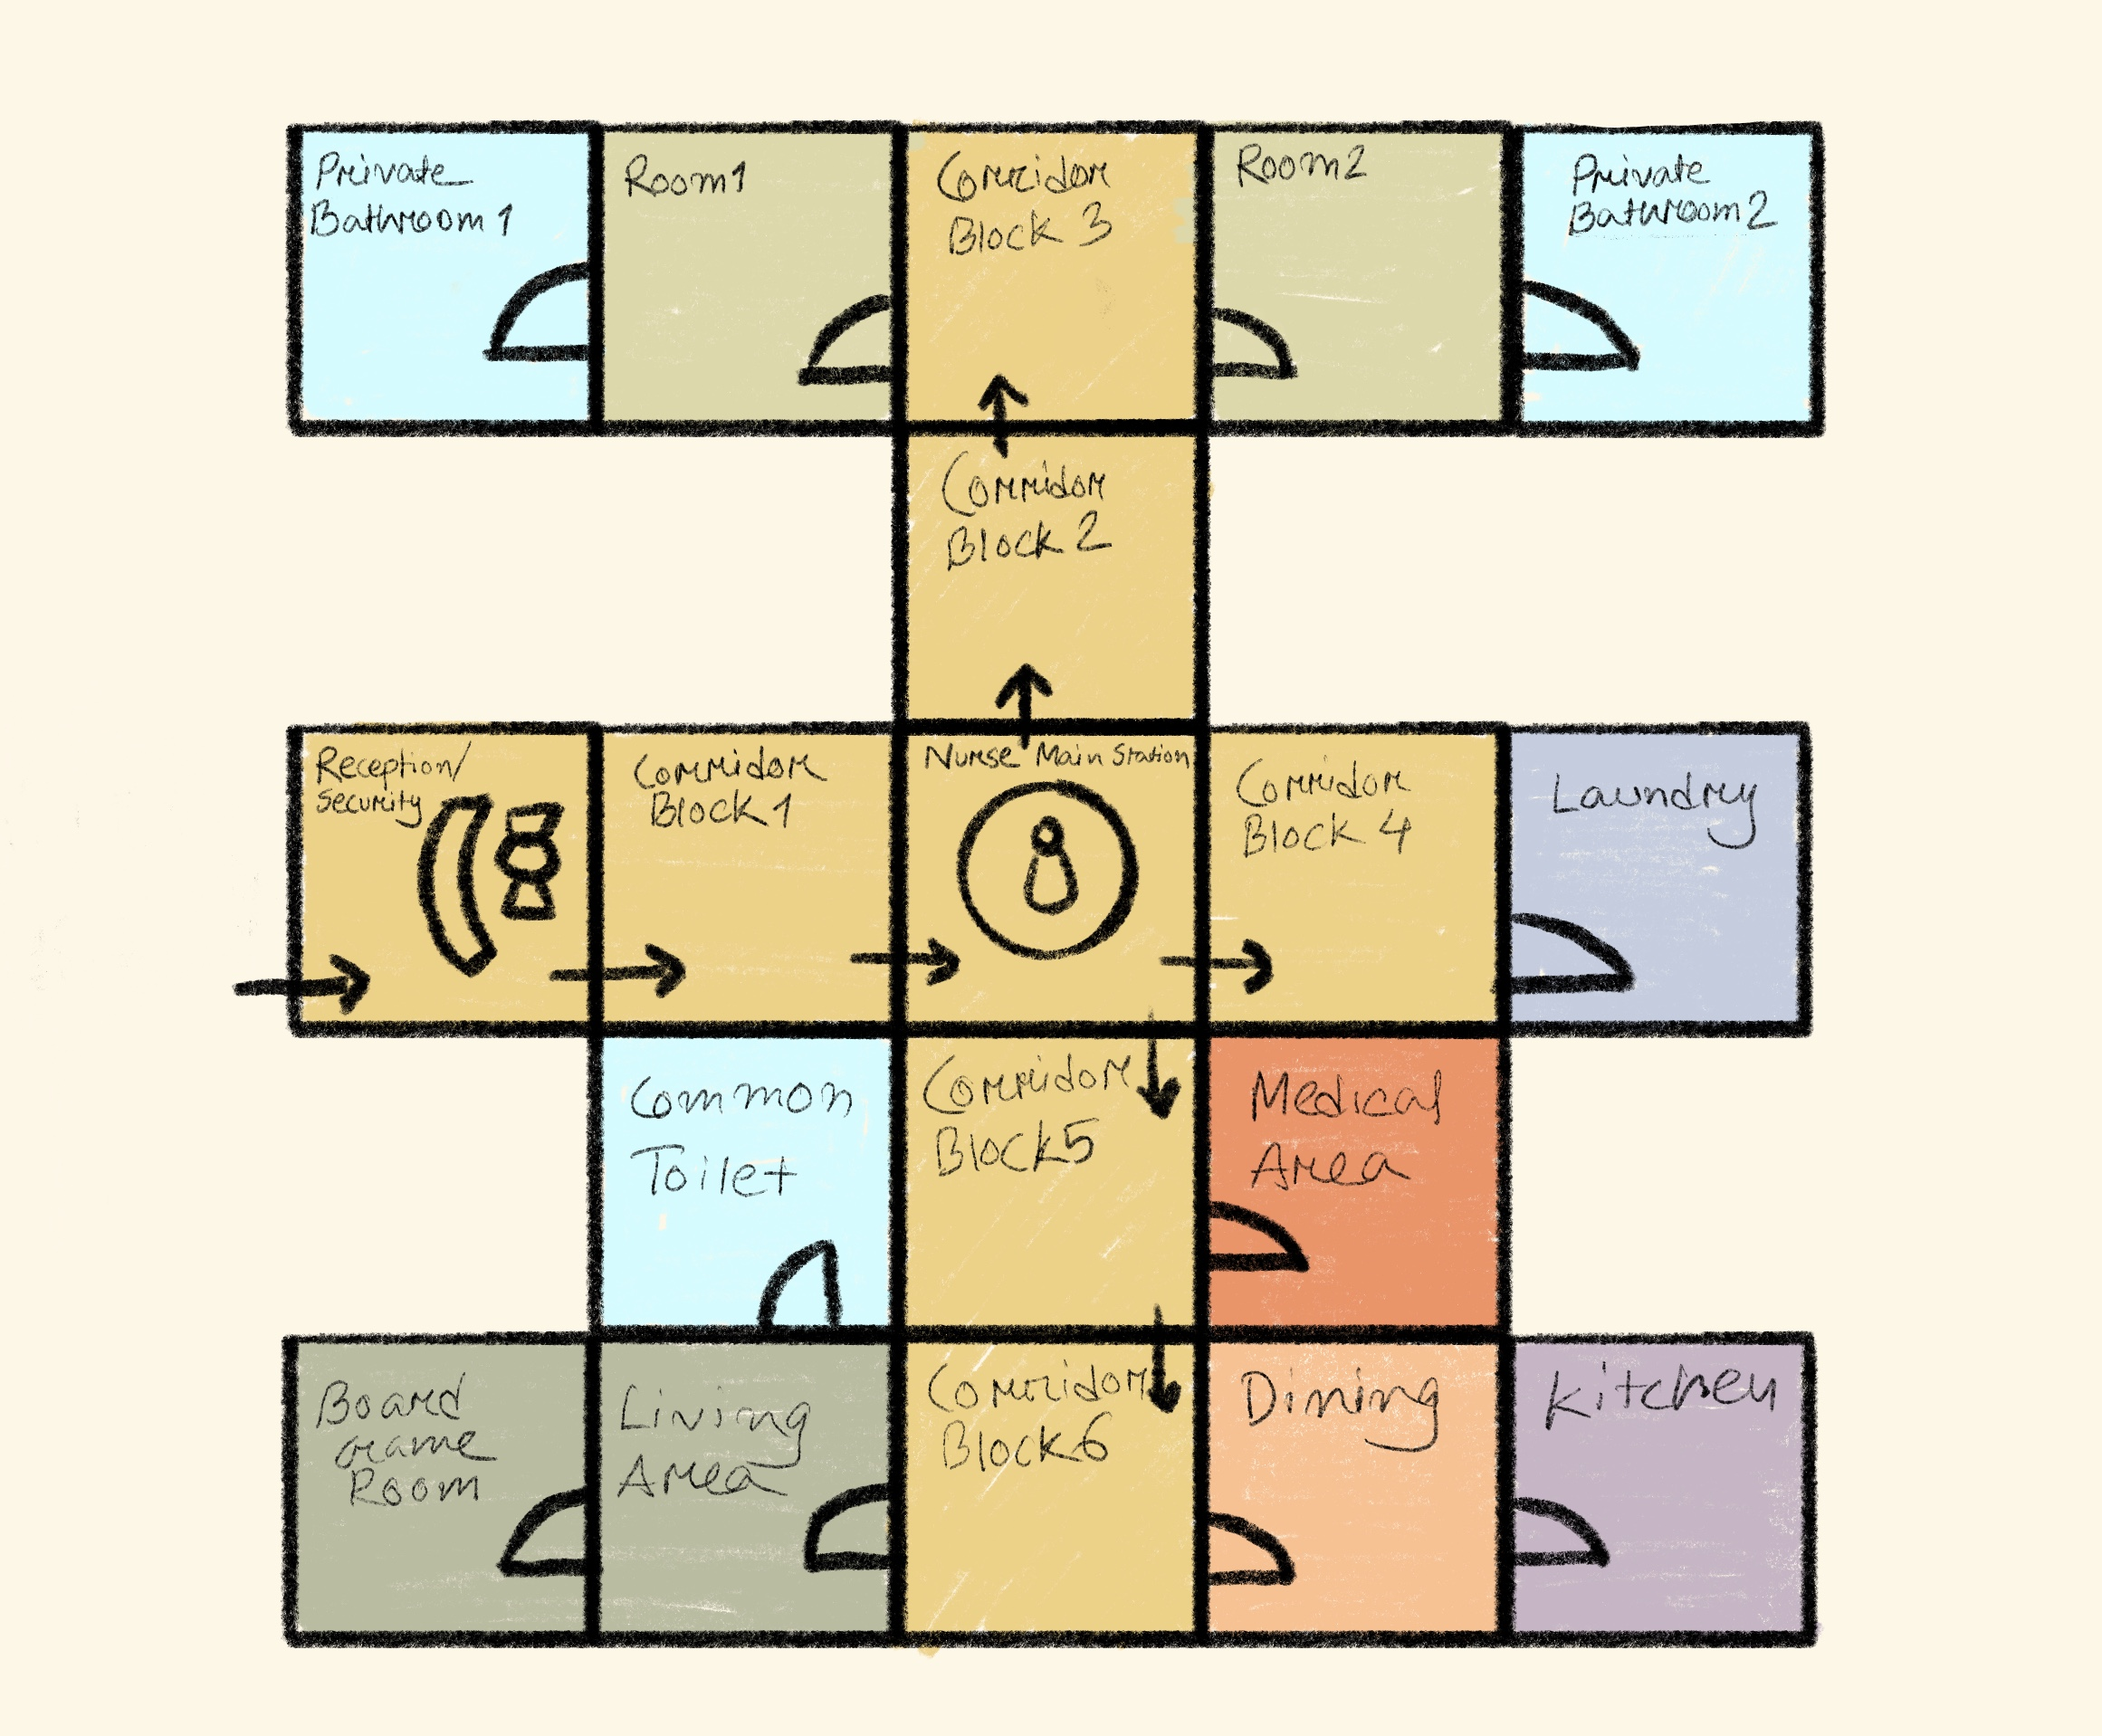 Private
Bathroom 1
Room1
Corridor
Block 3
Room2
Private
Bathroom2
Corridor
Block 2
Reception/
Security
Corridor
Block 1
Nurse Main Station
Corridor
Block 4
Laundry
Common
Toilet
Corridor
Block5
Medical
Area
Board
Game
Room
Living
Area
Corridor
Block6
Dining
Kitchen